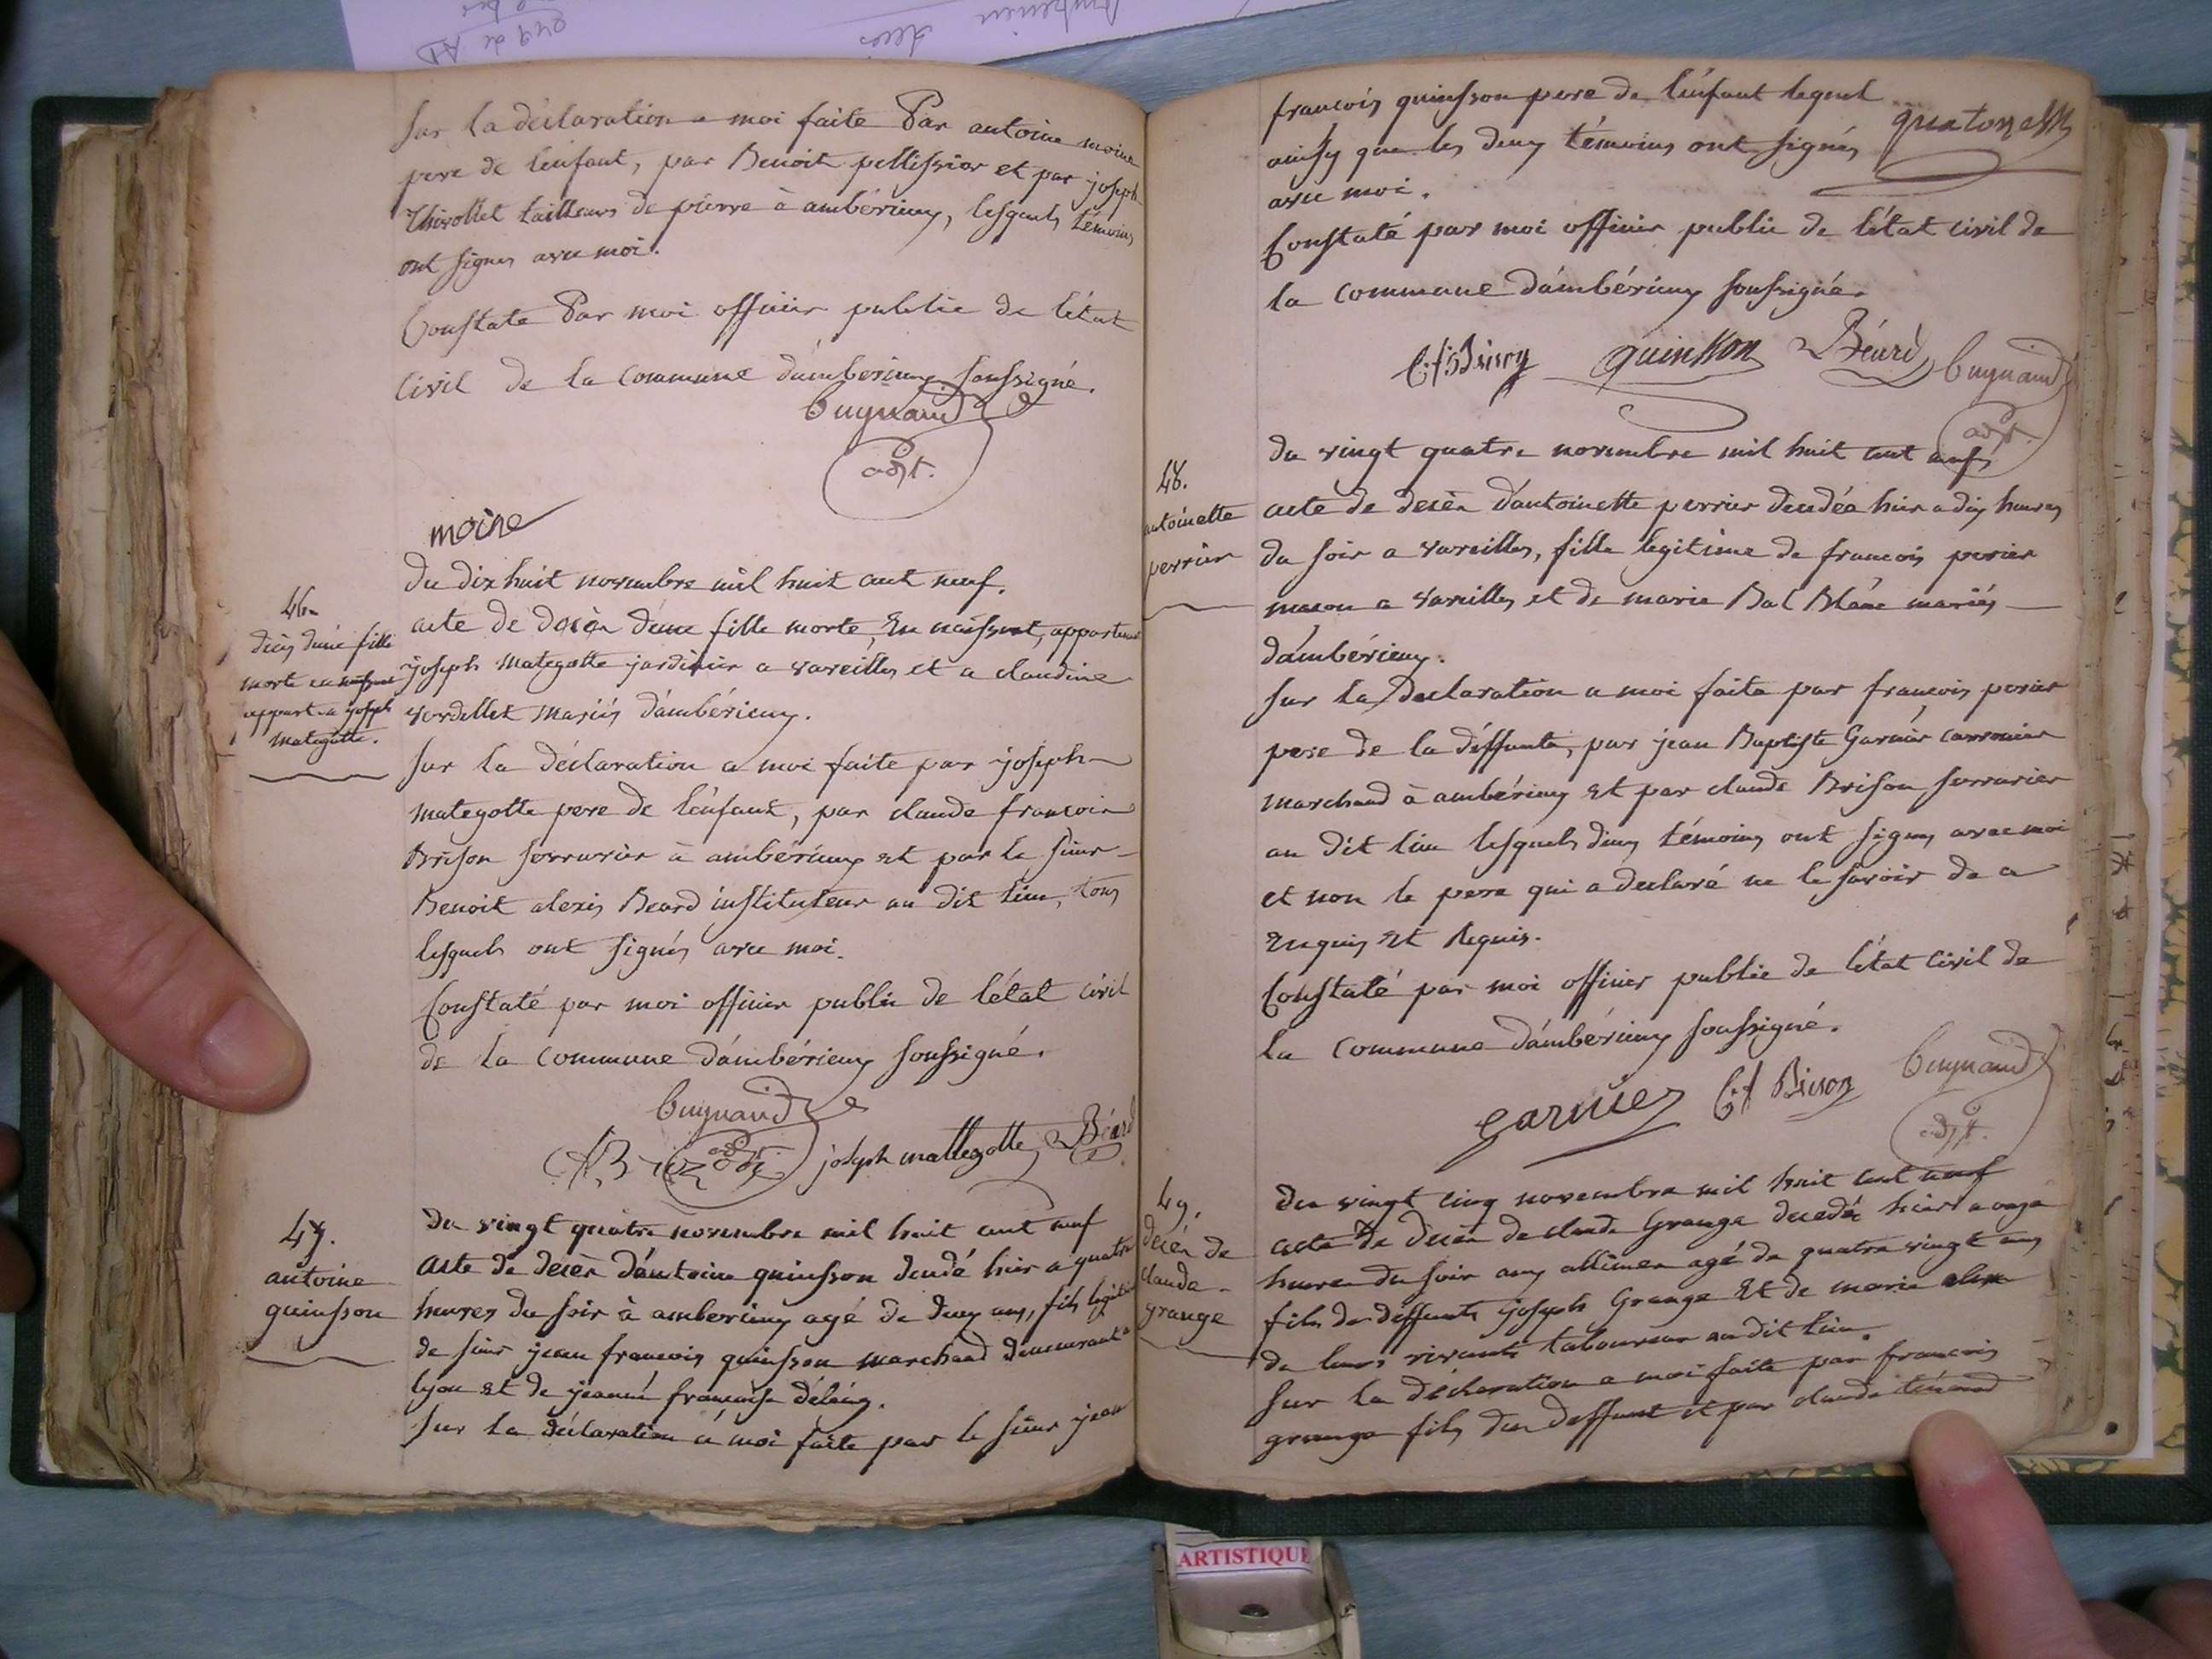 sur la déclaration a moi faite Par antoine moine
pere de l'enfant, par Benoit pellissier et par joseph
Thivollet tailleurs de pierre à ambérieux, lesquels témoins
ont signés avec moi.
Constaté Par moi officier public de l'état
civil de la Commune d'ambérieux soussigné.
Buynand
adjt.
moine
46.
décès d'une fille
morte en naissant
appart. a joseph
mategotte.
Du dix huit novembre mil huit cent neuf.
acte de décès d'une fille morte, En naissant, appartenant
joseph Mategotte jardinier a vareilles et a claudine
verdellet mariés d'ambérieux.
sur la déclaration a moi faite par joseph
mategotte pere de l'enfant, par claude francois
Brison serrurier à ambérieux et par le sieur
Benoit alexis Beard instituteur au dit lieu, tous
lesquels ont signés avec moi.
Constaté par moi officier public de l'état civil
de la Commune d'ambérieux soussigné.
Buynand
adjt.
joseph mattegotte Béard
47.
antoine
quinsson
Du vingt quatre novembre mil huit cent neuf
Acte de décès d'antoine quinsson décédé hier a quatre
heures du soir à amberieux agé de deux ans, fils légitime
de sieur jean francois quinsson marchand demeurant a
lyon et de jeanne françoise
sur la déclaration a moi faite par le sieur jean
francois quinsson pere de l'enfant lequel
ainsy que les deux témoins ont signés
avec moi.
Constaté par moi officier public de l'état civil de
la Commune d'ambérieux soussigné.
quinsson Béard Buynand
adjt.
48.
antoinette
perrier
du vingt quatre novembre mil huit cent neuf
acte de décès d'antoinette perrier décédée hier a dix heures
du soir a vareilles, fille legitime de francois perier
macon a vareilles et de marie Bal Blanc mariés
d'ambérieux.
sur la declaration a moi faite par francois perier
pere de la deffunte, par jean Baptiste Garnier
marchand à ambérieux et par claude Brison serrurier
au dit lieu lesquels deux témoins ont signés avec moi
et non le pere qui a declaré ne le savoir de ce
Enquis et Requis.
Constaté par moi officier public de l'état civil de
la Commune d'ambérieux soussigné.
garnier Cf Brison Buynand
adjt.
49.
décès de
claude
grange
Du vingt cinq novembre mil huit cent neuf
acte de décès de claude Grange decedé hier a onze
heures du soir aux allimes agé de quatre vingt ans
fils de deffunts joseph Grange et de marie
de leurs vivants laboureur au dit lieu.
sur la déclaration a moi faite par francois
grange fils du deffunt et par claude tenand
ARTISTIQUE